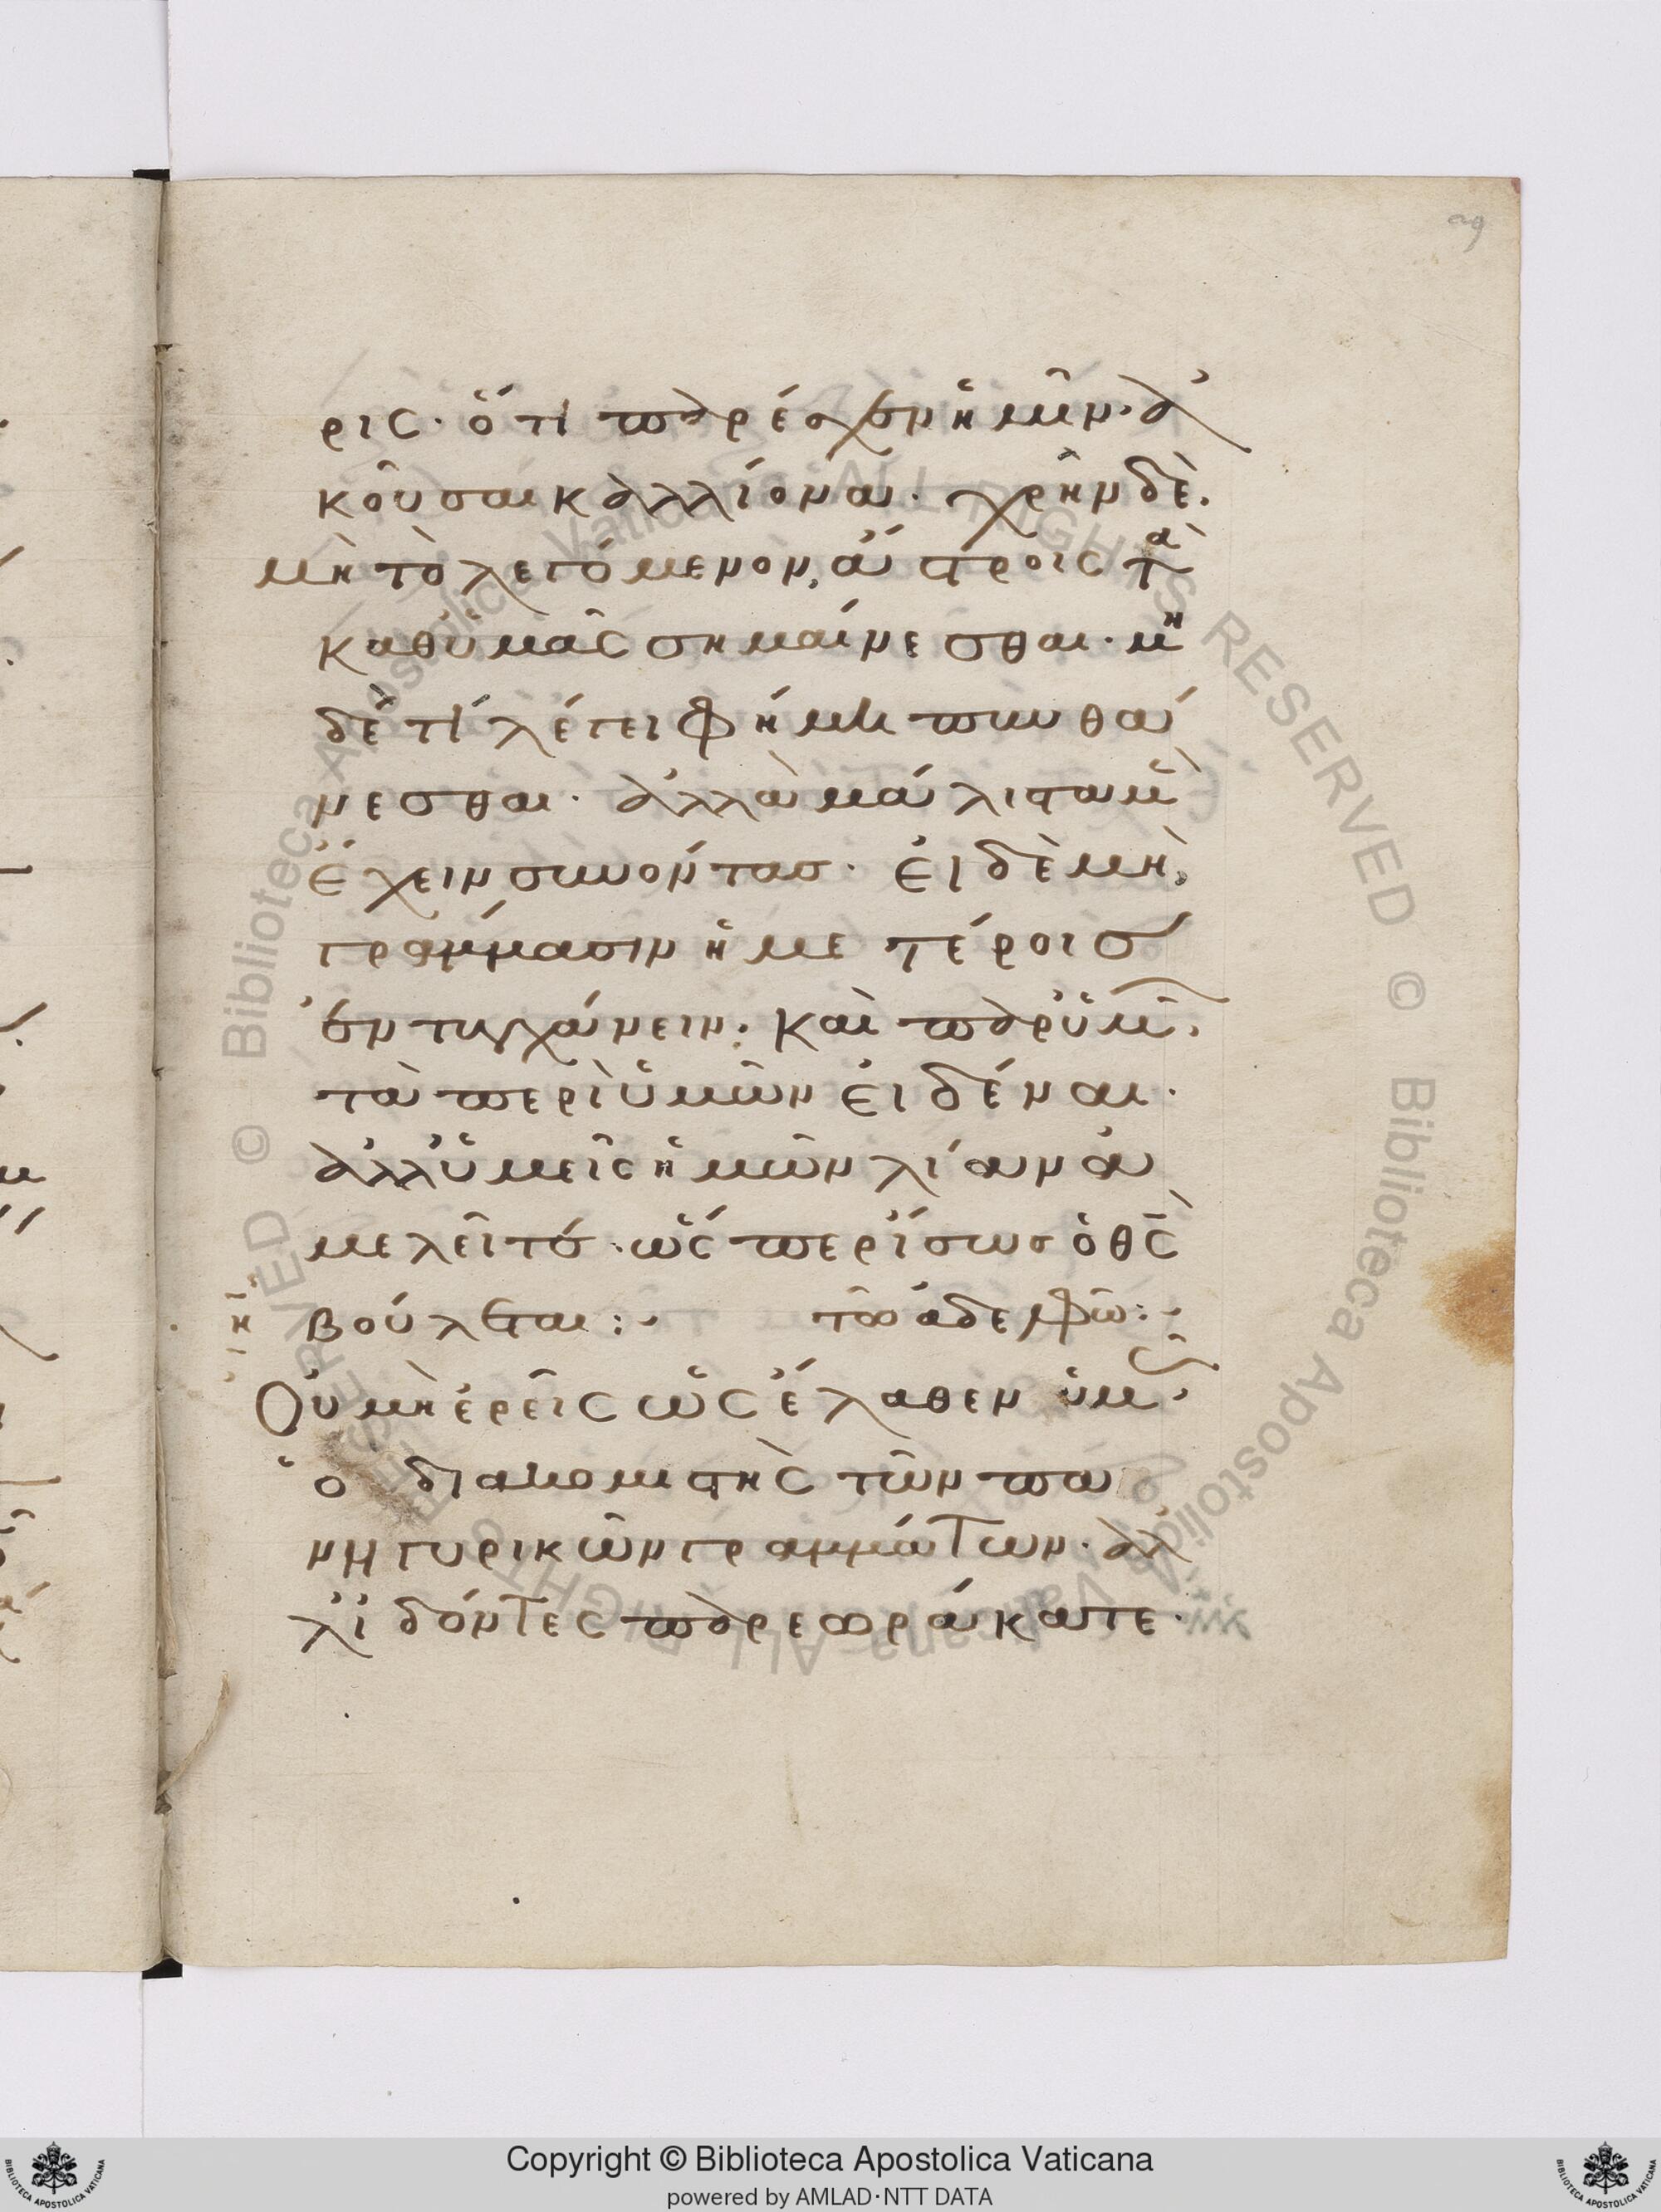 29
ρις· ὅτι παρέσχεν ἡμῖν· ἀ
κοῦσαι καλλίονα· χρῆν δὲ.
μὴ τὸ λεγόμενον, ἄστροις τὰ
καθ ὑμᾶς σημαίνεσθαι· μη
δὲ τί λέγει φήμη πυνθά
νεσθαι· ἀλλὰ μάλιστα μὲ
ἔχειν συνόντας· εἰ δὲ μὴ,
γράμμασιν ἡμετέροις
ἐντυγχάνειν· καὶ παρ ὑμῶν·
τὰ περὶ ὑμῶν εἰδέναι·
ἀλλ ὑμεῖς ἡμῶν λίαν ἀ
μελεῖτέ· ὥσπερ ἴσως ὁ θς
βούλεται:· τῶ ἀδελφῶ:·
η
Οὐ μὴ ἐρεῖς ὡς ἔλαθεν ὑμᾶς·
ὁ διακομιστὴς τῶν πα
νηγυρικῶν γραμμάτων· ἀλ
λ ἰδόντες παρεωράκατε·
Copyright © Biblioteca Apostolica Vaticana
powered by AMLAD·NTT DATA